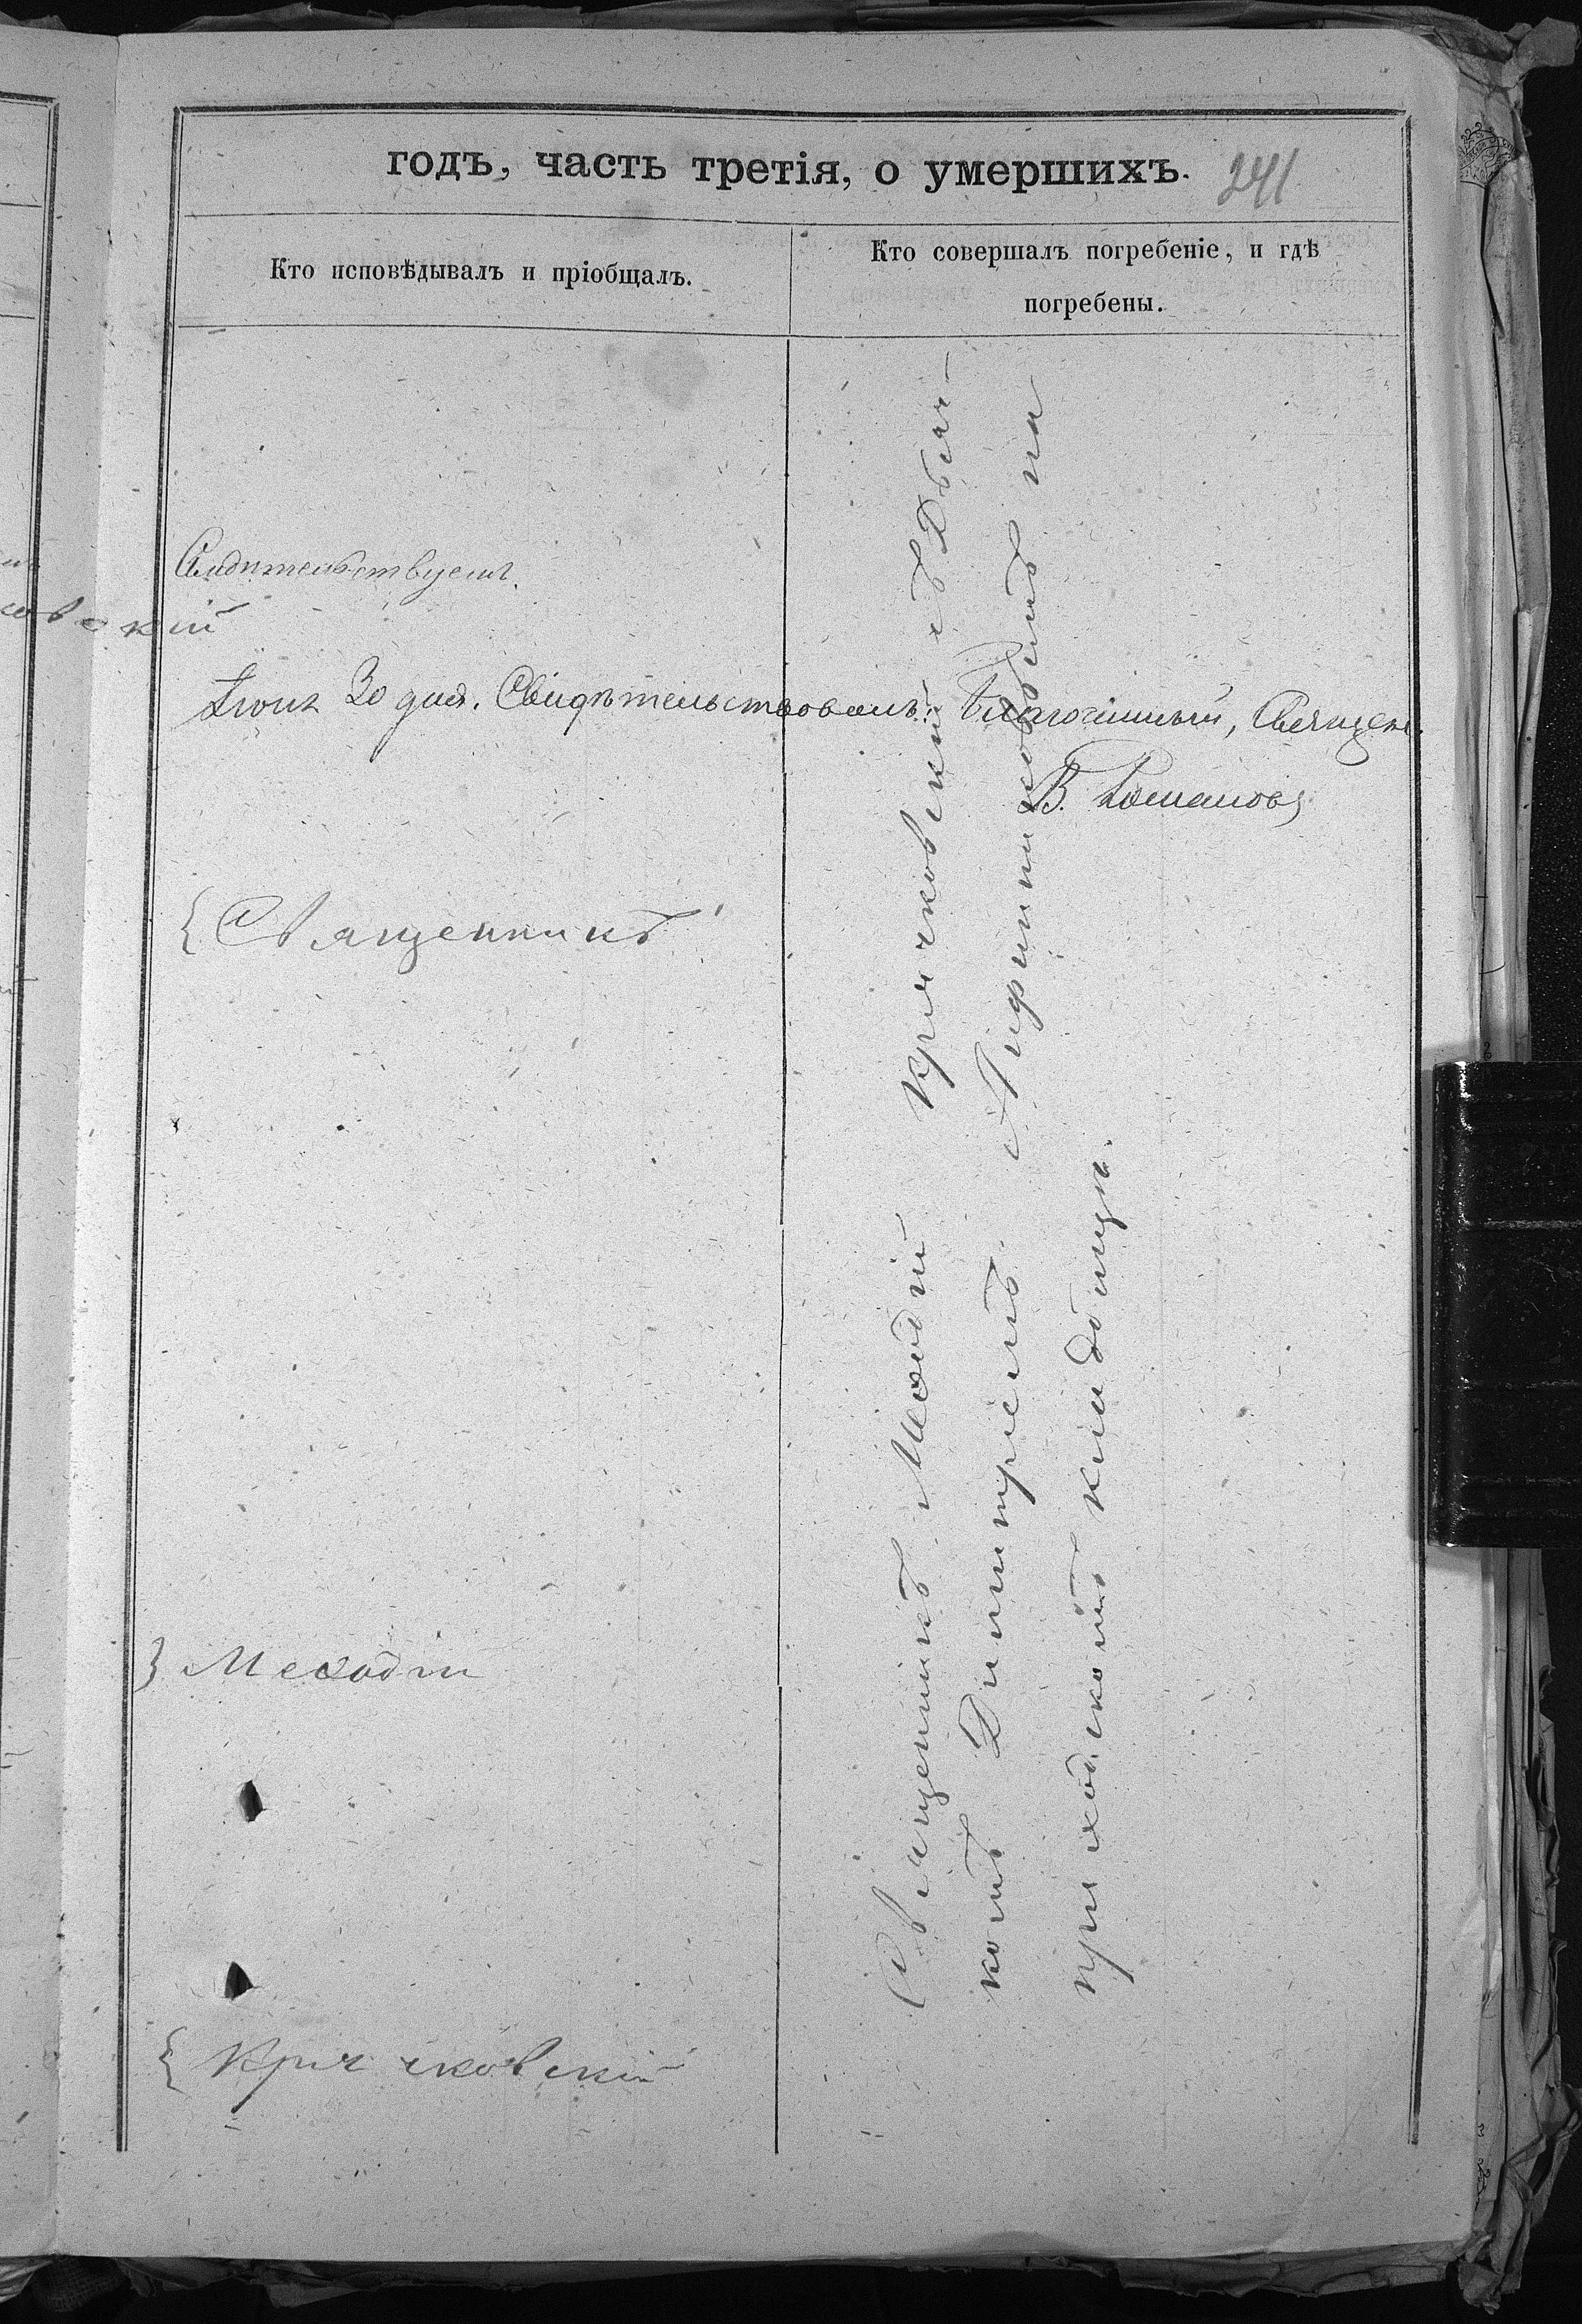 годъ, часть третія, о умершихъ. 241
Кто исповѣдывалъ и пріобщалъ.
Кто совершалъ погребеніе, и гдѣ
погребены.
кій
Іюня 30 дня. Свидѣтельствовалъ: Благочинный, Священ.
В. Романовъ
Священникъ
Меѳодій
Крячковскій
Священникъ Меѳодій Крячковскій съ Дьяч-
комъ Димитріемъ на
приходскомъ кладбищѣ.